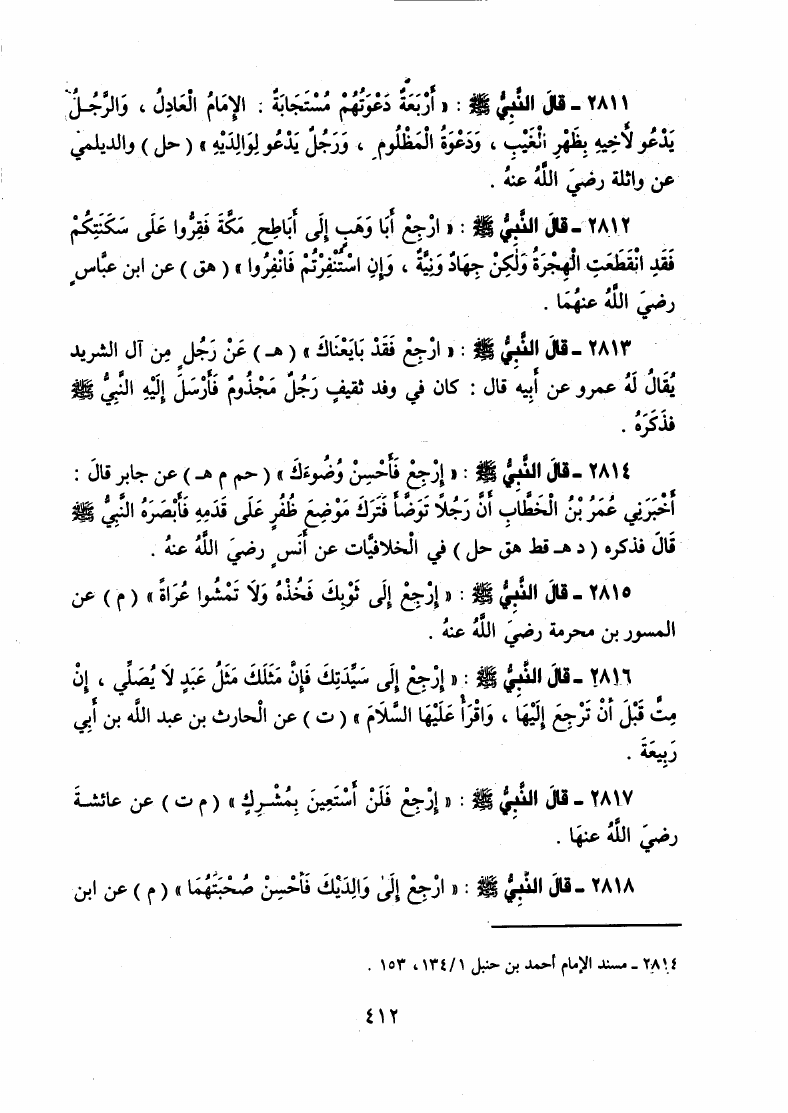 ٢٨١١ ـ قالَ النَّبِيُّ ﷺ : « أَرْبَعَةٌ دَعْوَتُهُمْ مُسْتَجَابَةٌ : الإِمَامُ الْعَادِلُ ، وَالرَّجُلُ
يَدْعُو لأَخِيهِ بِظَهْرِ الْغَيْبِ ، وَدَعْوَةُ الْمَظْلُومِ ، وَرَجُلٌ يَدْعُو لِوَالِدَيْهِ » ( حل ) والديلمي
عن واثلة رضيَ اللَّهُ عنهُ .
٢٨١٢ ـ قالَ النَّبِيُّ ﷺ : « ارْجِعْ أَبَا وَهَبٍ إِلَى أَبَاطِحِ مَكَّةَ فَقِرُّوا عَلَى سَكَنَتِكُمْ
فَقَدِ انْقَطَعَتِ الْهِجْرَةُ وَلَكِنْ جِهَادٌ وَنِيَّةٌ ، وَإِنِ اسْتُنْفِرْتُمْ فَانْفِرُوا » ( هق ) عن ابن عبَّاسٍ
رضيَ اللَّهُ عنهُمَا .
٢٨١٣ ـ قالَ النَّبِيُّ ﷺ : « ارْجِعْ فَقَدْ بَايَعْنَاكَ » ( هـ ) عَنْ رَجُلٍ مِن آل الشريد
يُقَالُ لَهُ عمرو عن أَبِيه قال : كان في وفد ثقيفٍ رَجُلٌ مَجْذُومٌ فَأَرْسَلَ إِلَيْهِ النَّبِيُّ ﷺ
فذكَرَهُ .
٢٨١٤ ـ قالَ النَّبِيُّ ﷺ : « إِرْجِعْ فَأَحْسِنْ وُضُوءَكَ » ( حم م هـ ) عن جابر قالَ :
أَخْبَرَنِي عُمَرُ بْنُ الْخَطَّابِ أَنَّ رَجُلاً تَوَضَّأَ فَتَرَكَ مَوْضِعَ ظُفُرٍ عَلَى قَدَمِهِ فَأَبْصَرَهُ النَّبِيُّ ﷺ
قَالَ فذكره ( د هـ قط هق حل ) في الْخلافيَّات عن أَنَسٍ رضيَ اللَّهُ عنهُ .
٢٨١٥ ـ قالَ النَّبِيُّ ﷺ : « إِرْجِعْ إِلَى ثَوْبِكَ فَخُذْهُ وَلَا تَمْشُوا عُرَاةً » ( م ) عن
المسور بن محرمة رضيَ اللَّهُ عنهُ .
٢٨١٦ ـ قالَ النَّبِيُّ ﷺ : « إِرْجِعْ إِلَى سَيِّدَتِكَ فَإِنَّ مَثَلَكَ مَثَلُ عَبْدٍ لَا يُصَلِّي ، إِنْ
مِتَّ قَبْلَ أَنْ تَرْجِعَ إِلَيْهَا ، وَاقْرَأْ عَلَيْهَا السَّلَامَ » ( ت ) عن الْحارث بن عبد اللَّه بن أَبِي
رَبِيعَةَ .
٢٨١٧ ـ قالَ النَّبِيُّ ﷺ : « إِرْجِعْ فَلَنْ أَسْتَعِينَ بِمُشْرِكٍ » ( م ت ) عن عائشة
رضيَ اللَّهُ عنهَا .
٢٨١٨ ـ قالَ النَّبِيُّ ﷺ : « ارْجِعْ إِلَىٰ وَالِدَيْكَ فَأَحْسِنْ صُحْبَتَهُمَا » ( م ) عن ابن
٢٨١٤ ـ مسند الإمام أحمد بن حنبل ١/ ١٣٤ ، ١٥٣ .
٤١٢